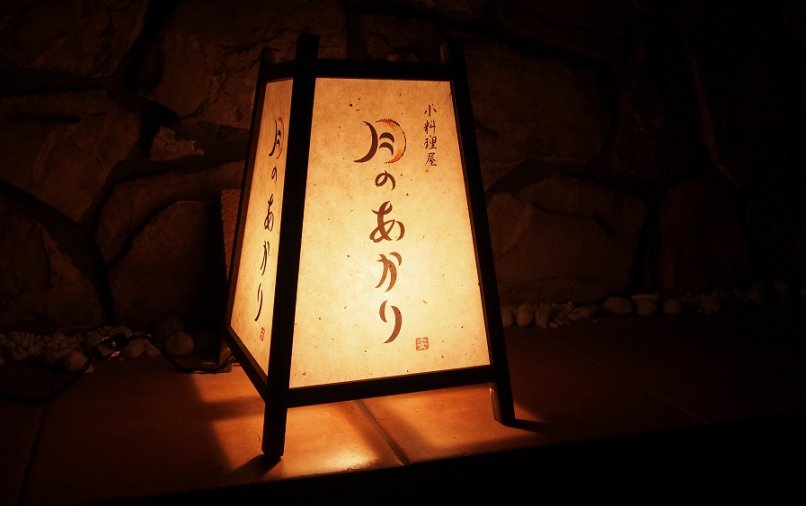 小料理屋
月のあかり
月のあかり